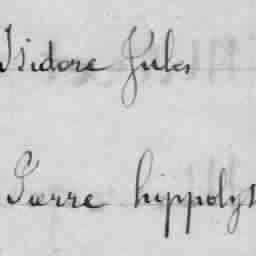 Isidore Jules
Pierre hippolyt